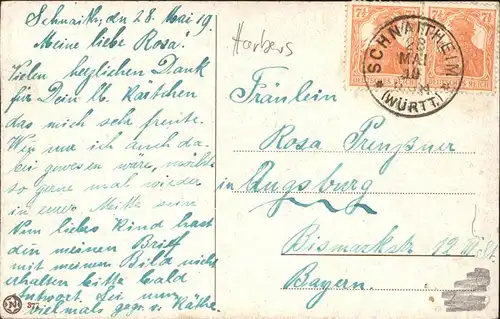 Schnaith, den 28. Mai 19.
Meine liebe Rosa!
Vielen herzlichen Dank
für Dein lb. Kärtchen
das mich sehr freute.
Wenn nur ich auch da-
bei gewesen wäre, möchte
so gerne mal wieder
in eurer Mitte sein
Nun liebes Kind hast
du meinen Brief
mit meinem Bild nicht
erhalten bitte bald
Antwort. Sei nun
vielmals gegr. v. Käthe.
Harbers
SCHNAITHEIM
28
MAI
19
(WÜRTT.)
7½ 7½
Fräulein
Rosa Preußner
in Augsburg
Bismarckstr. 12 III St.
Bayern.
N 377